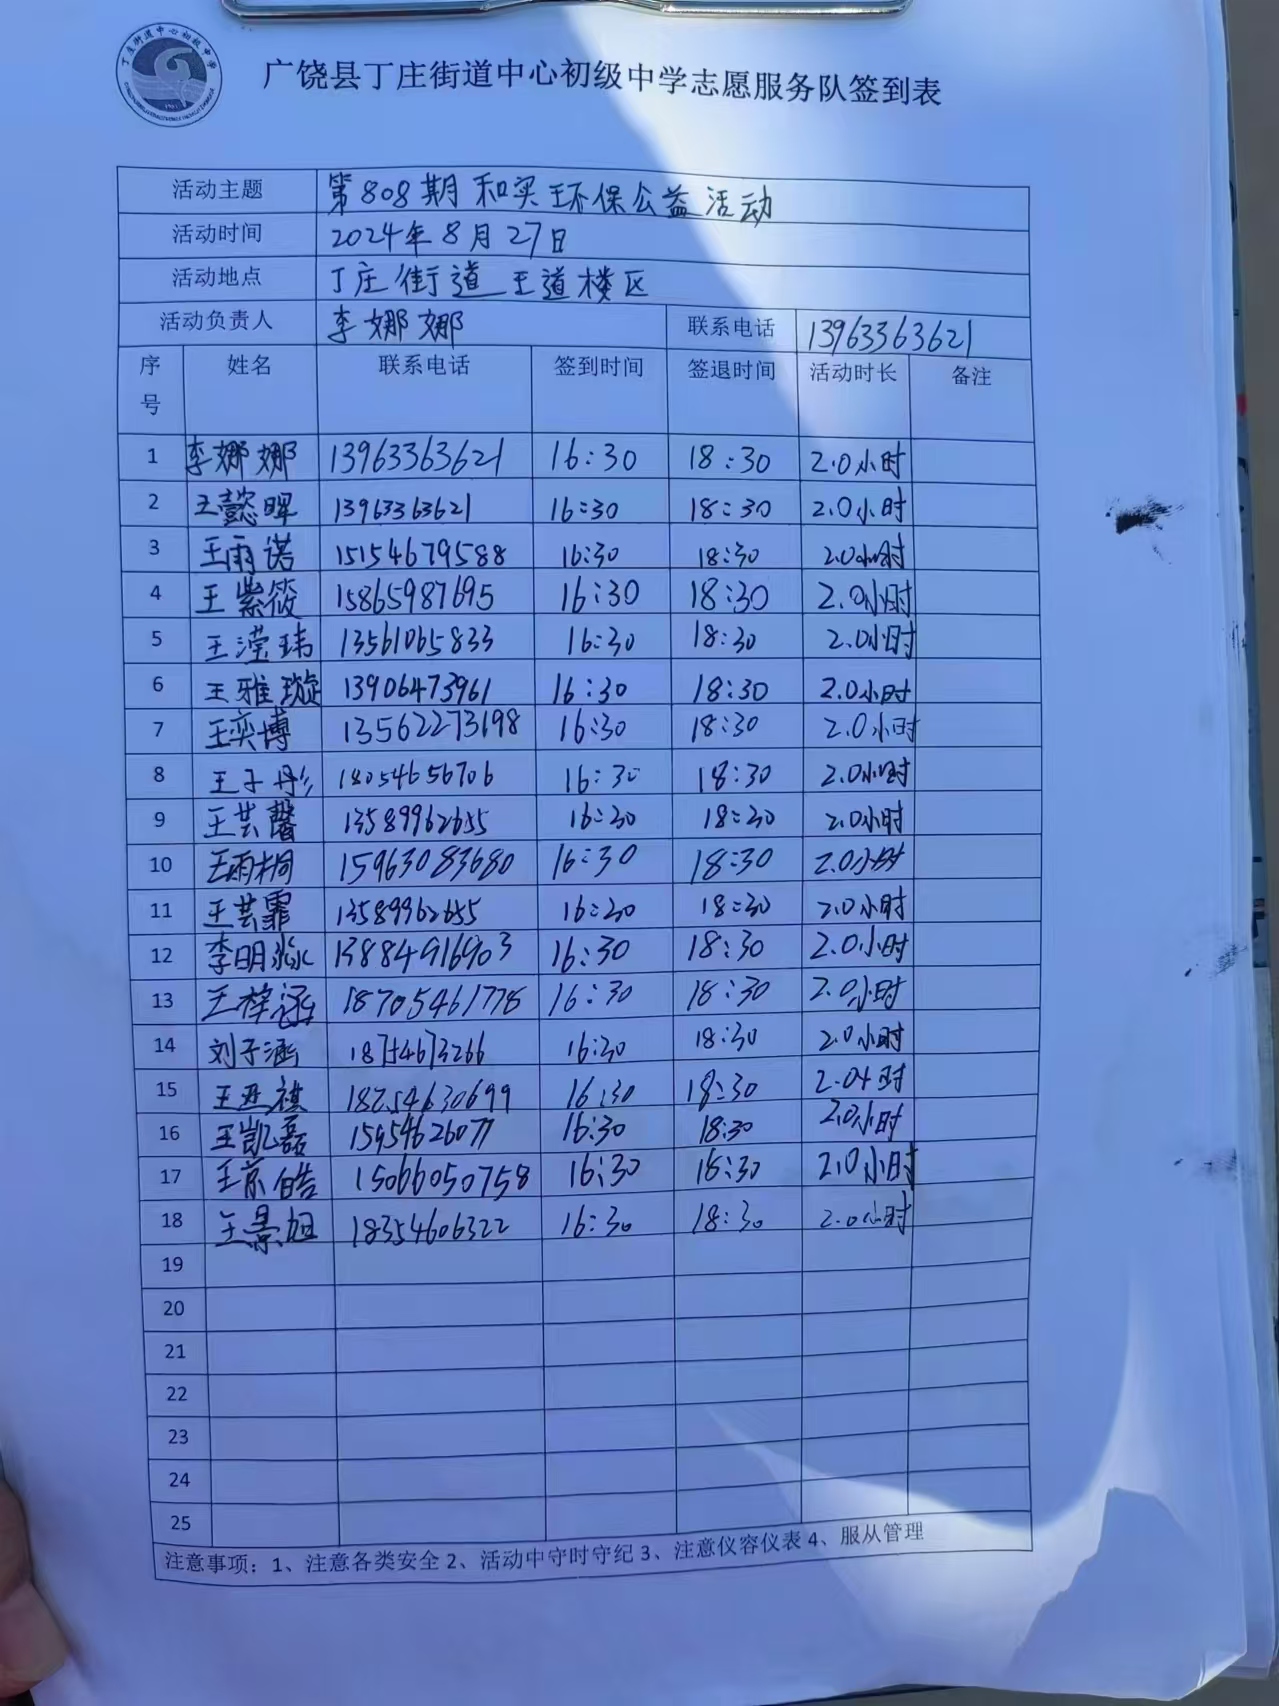 丁庄街道中心初级中学
广饶县丁庄街道中心初级中学志愿服务队签到表
活动主题 第808期和实环保公益活动
活动时间 2024年8月27日
活动地点 丁庄街道王道楼区
活动负责人 李娜娜 联系电话 13963363621
序号 姓名 联系电话 签到时间 签退时间 活动时长 备注
1 李娜娜 13963363621 16:30 18:30 2.0小时
2 王懿晖 13963363621 16:30 18:30 2.0小时
3 王雨诺 15154679588 16:30 18:30 2.0小时
4 王紫筱 15865987695 16:30 18:30 2.0小时
5 王滢玮 13561065833 16:30 18:30 2.0小时
6 王雅璇 13906473961 16:30 18:30 2.0小时
7 王奕博 13562273198 16:30 18:30 2.0小时
8 王子彤 18054656706 16:30 18:30 2.0小时
9 王芸馨 13589962655 16:30 18:30 2.0小时
10 王雨桐 15963083680 16:30 18:30 2.0小时
11 王芸霏 13589962655 16:30 18:30 2.0小时
12 李明淼 13884916903 16:30 18:30 2.0小时
13 王梓涵 18705461778 16:30 18:30 2.0小时
14 刘子涵 18754673266 16:30 18:30 2.0小时
15 王丑祺 18254630699 16:30 18:30 2.0小时
16 王凯磊 15954626077 16:30 18:30 2.0小时
17 王京皓 15066050758 16:30 18:30 2.0小时
18 王景旭 18354606322 16:30 18:30 2.0小时
19
20
21
22
23
24
25
注意事项：1、注意各类安全 2、活动中守时守纪 3、注意仪容仪表 4、服从管理